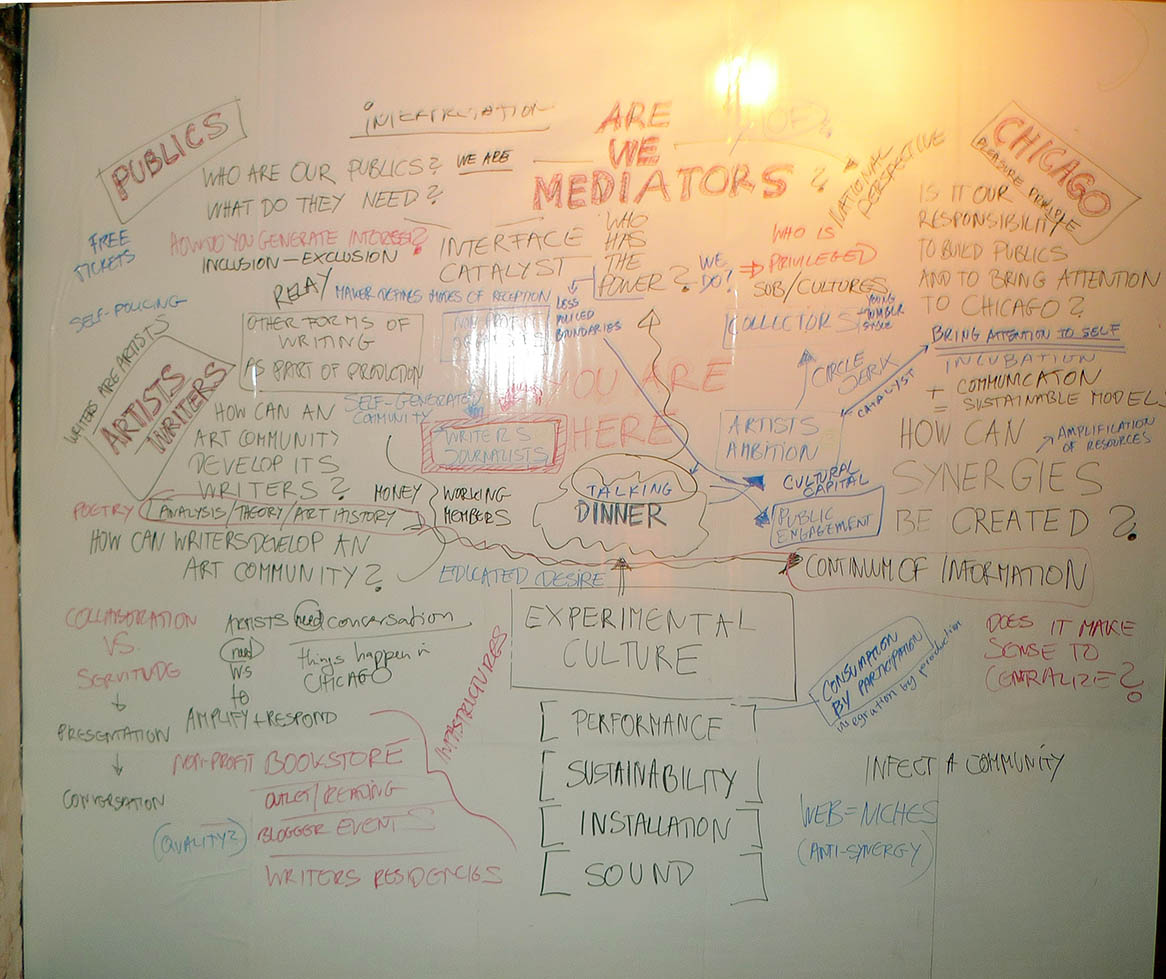 INTERPRETATION
ARE
WE
MEDIATORS ?
OF?
PUBLICS
WHO ARE OUR PUBLICS? WE ARE
WHAT DO THEY NEED?
NATIONAL
PERSPECTIVE
CHICAGO
PLEASURE PRINCIPLE
IS IT OUR
RESPONSIBILITY
TO BUILD PUBLICS
AND TO BRING ATTENTION
TO CHICAGO?
FREE
TICKETS
HOW DO YOU GENERATE INTEREST?
INCLUSION — EXCLUSION
INTERFACE
CATALYST
RELAY
MAKER DEFINES MODES OF RECEPTION
WHO
HAS
THE
POWER?
WE
DO?
WHO IS
PRIVILEGED
SUB/CULTURES
LESS
POLICED
BOUNDARIES
COLLECTORS
YOUNG
TUMBLR
STYLE
SELF-POLICING
OTHER FORMS OF
WRITING
AS PART OF PRODUCTION
BRING ATTENTION TO SELF
INCUBATION
+ COMMUNICATON
= SUSTAINABLE MODEL
CIRCLE
JERK
CATALYST
WRITERS ARE ARTISTS
ARTISTS
WRITERS
YOU ARE
HERE
SELF-GENERATED
COMMUNITY
WRITERS
JOURNALISTS
ARTISTS
AMBITION
HOW CAN AN
ART COMMUNITY
DEVELOP ITS
WRITERS?
MONEY
WORKING
MEMBERS
TALKING
DINNER
CULTURAL
CAPITAL
PUBLIC
ENGAGEMENT
HOW CAN
SYNERGIES
BE CREATED?
AMPLIFICATION
OF RESOURCES
POETRY
ANALYSIS/THEORY/ART HISTORY
HOW CAN WRITERS DEVELOP AN
ART COMMUNITY?
EDUCATED DESIRE
CONTINUUM OF INFORMATION
EXPERIMENTAL
CULTURE
COLLABORATION
VS.
SERVITUDE
PRESENTATION
CONVERSATION
ARTISTS need conversation
need
WS
to
AMPLIFY + RESPOND
things happen in
CHICAGO
INFASTRUCTURES
CONSUMATION
BY PARTICIPATION
integration by production
DOES IT MAKE
SENSE TO
CENTRALIZE?
PERFORMANCE
SUSTAINABILITY
INSTALLATION
SOUND
NON-PROFIT BOOKSTORE
OUTLET/READING
BLOGGER EVENTS
WRITERS RESIDENCIES
(QUALITY?)
INFECT A COMMUNITY
WEB = NICHES
(ANTI-SYNERGY)